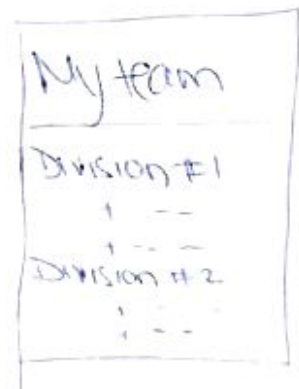 My team
Division #1
Division #2